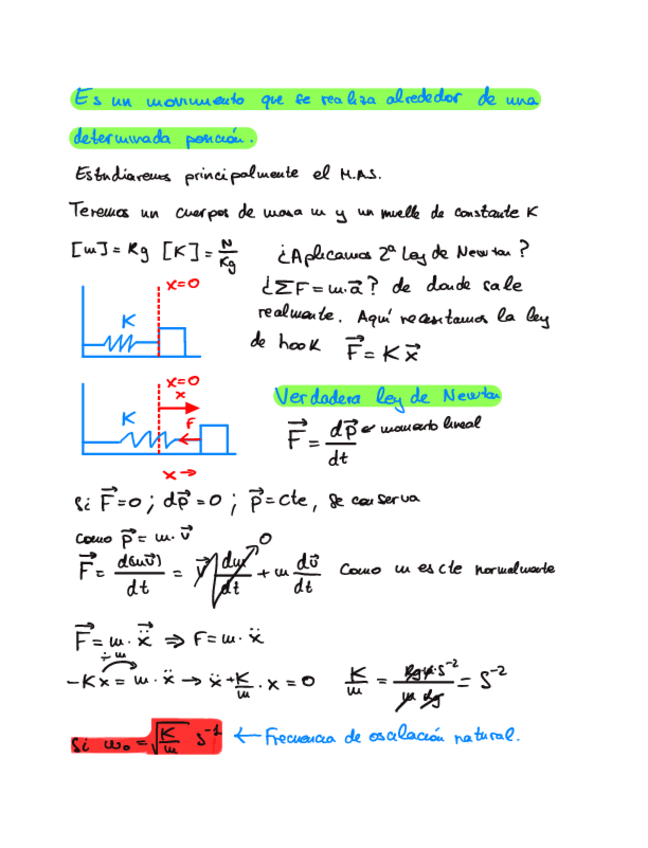 Es un movimiento que se realiza alrededor de una
determinada posición.
Estudiaremos principalmente el M.A.S.
Teremos un cuerpos de masa m y un muelle de constante K
[m] = Kg [K] = N/Kg ¿Aplicamos 2ª Ley de Newton?
¿ΣF = m·a⃗? de donde sale
realmente. Aquí necesitamos la ley
de hook F⃗ = K x⃗
x=0
K
Verdadera ley de Newton
F⃗ = dp⃗/dt ← momento lineal
x=0
x
K
F
x→
Si F⃗=0 ; dp⃗=0 ; p⃗=cte, se conserva
como p⃗ = m·v⃗
F⃗ = d(mv⃗)/dt = v⃗ dm/dt + m dv⃗/dt Como m es cte normalmente
0
F⃗ = m·ẍ⃗ ⇒ F = m·ẍ
÷m
-Kx = m·ẍ → ẍ + K/m · x = 0 K/m = Kg·m·s⁻²/m·Kg = S⁻²
Si ω₀ = √K/m s⁻¹ ← Frecuencia de oscilación natural.